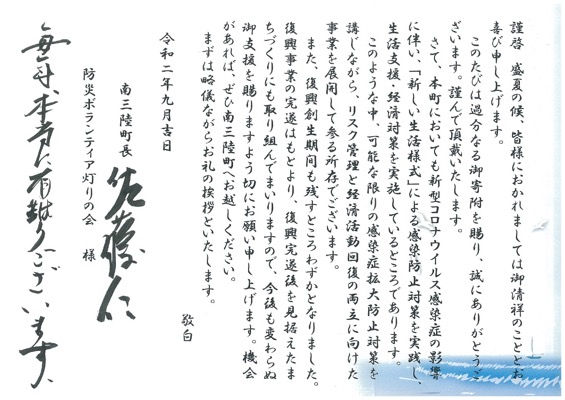 謹啓　盛夏の候、皆様におかれましては御清祥のこととお
喜び申し上げます。
このたびは過分なる御寄附を賜り、誠にありがとうご
ざいます。謹んで頂戴いたします。
さて、本町においても新型コロナウイルス感染症の影響
に伴い、「新しい生活様式」による感染防止対策を実践し、
生活支援・経済対策を実施しているところであります。
このような中、可能な限りの感染症拡大防止対策を
講じながら、リスク管理と経済活動回復の両立に向けた
事業を展開して参る所存でございます。
また、復興創生期間も残すところわずかとなりました。
復興事業の完遂はもとより、復興完遂後を見据えたま
ちづくりにも取り組んでまいりますので、今後も変わらぬ
御支援を賜りますよう切にお願い申し上げます。機会
があれば、ぜひ南三陸町へお越しください。
まずは略儀ながらお礼の挨拶といたします。
敬白
令和二年九月吉日
南三陸町長　佐藤仁
防災ボランティア灯りの会　様
毎年、本当に有難うございます、